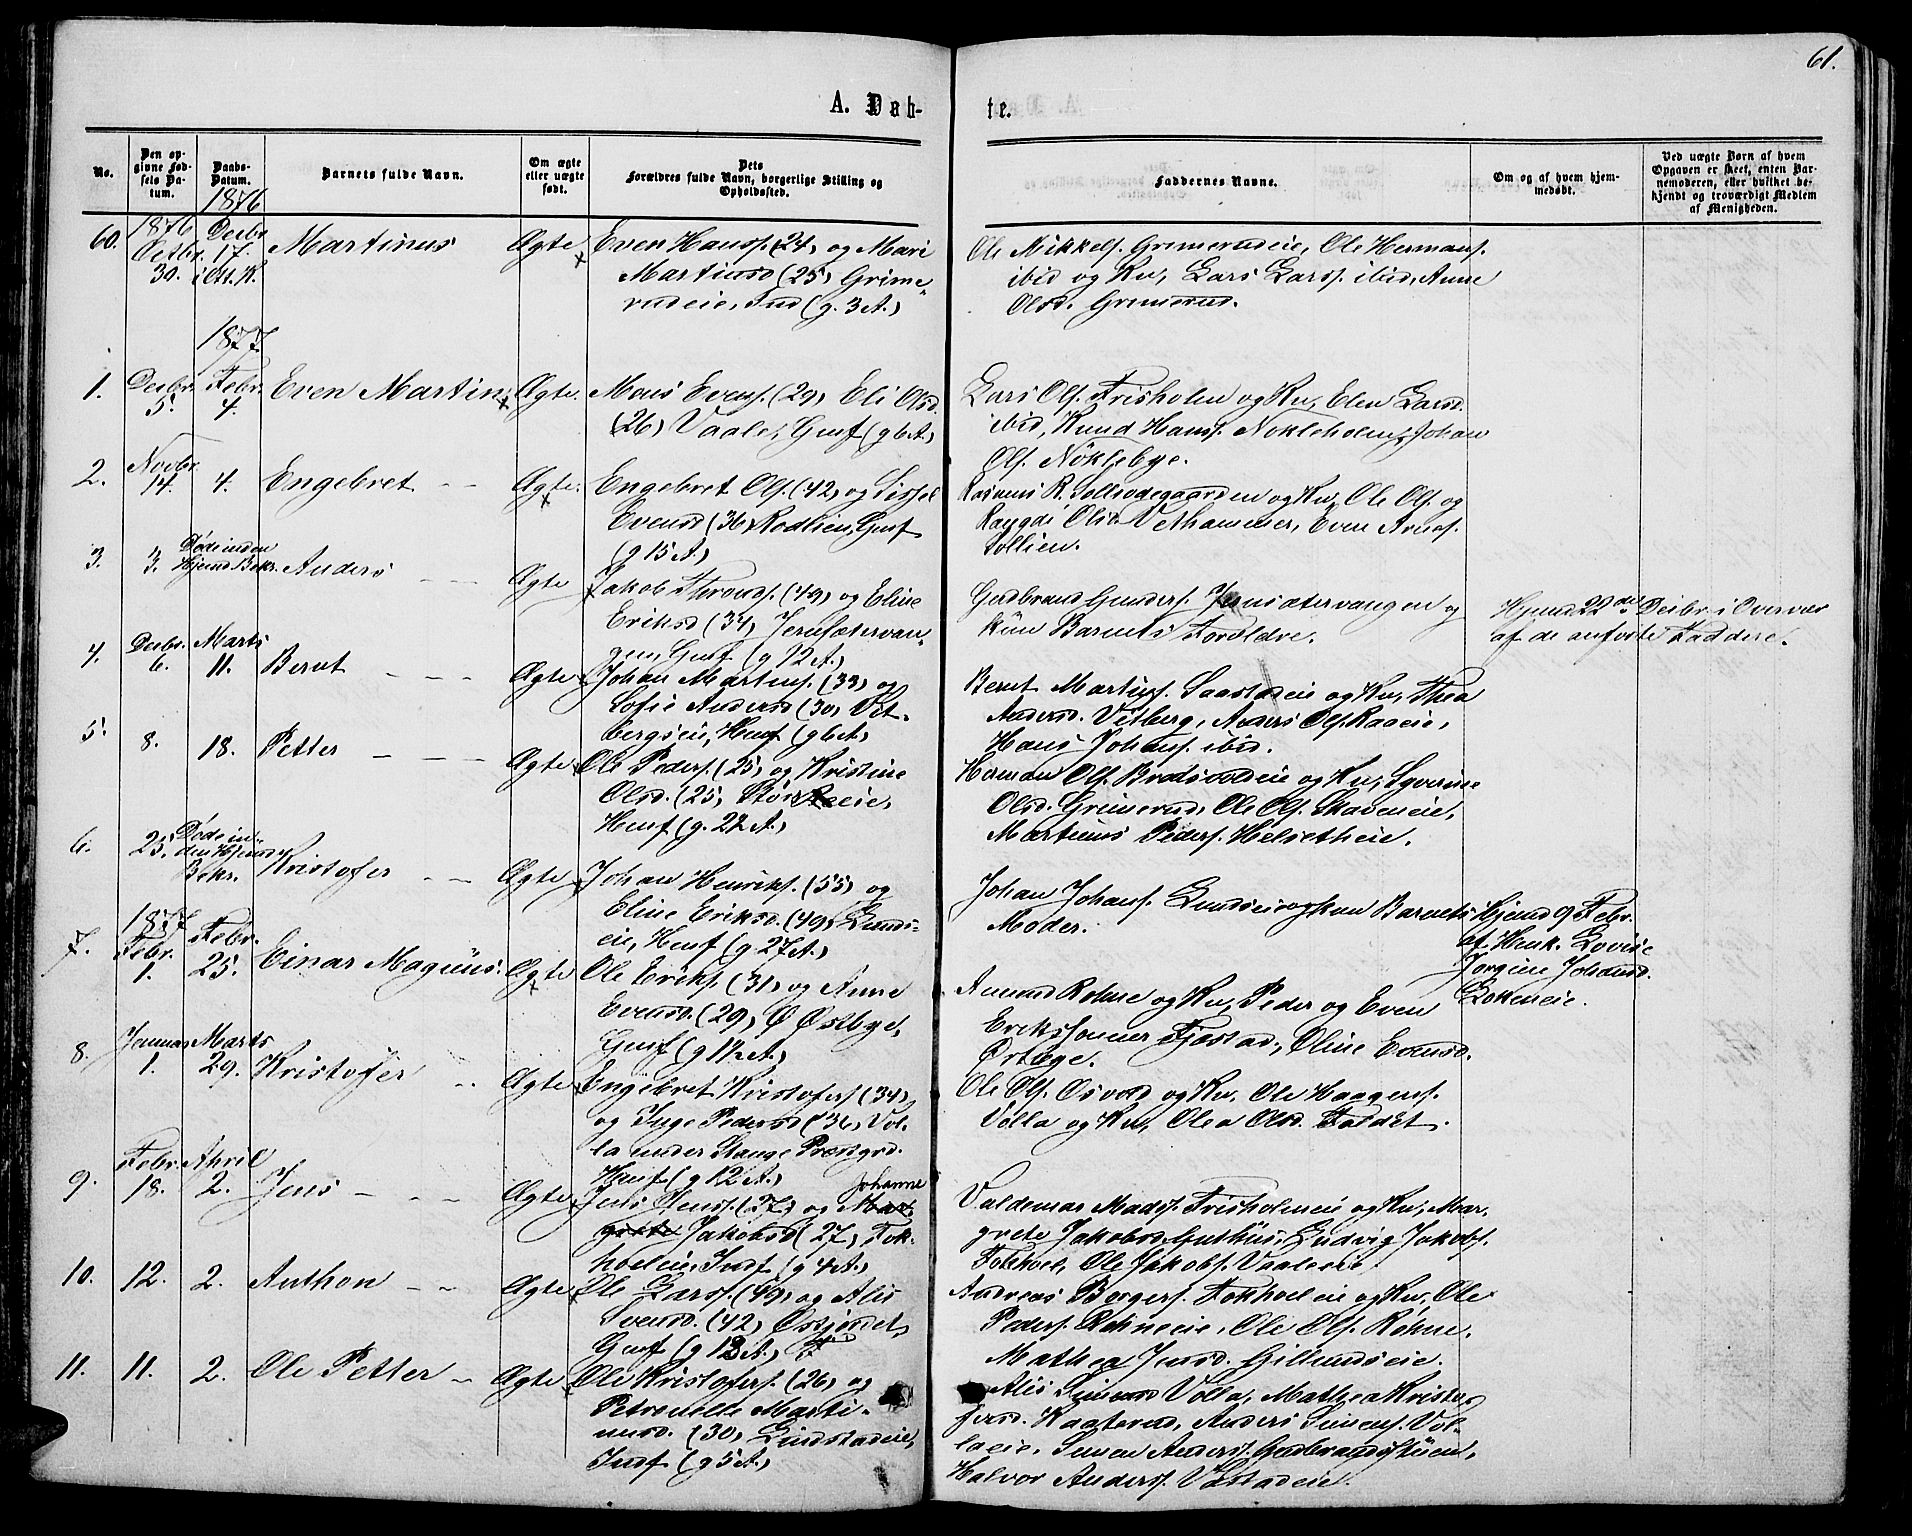 61.
A. Døb-
te.
No.
Den op-
givne Fød-
sels Da-
tum.
Daabs-
Datum.
Barnets fulde Navn.
Om ægte
eller uægte
født.
Dets
Forældres fulde Navn, borgerlige Stilling og
Opholdssted.
Faddernes Navne.
Om og af hvem hjem-
medøbt.
Ved uægte Børn af hvem
Opgaven er skeet, enten Bar-
nemoderen, eller hvilket be-
kjendt og troværdigt Medlem
af Menigheden.
1876
60. 1876 Decbr. Martinus Ægte Even Hansf. (24) og Mari
Octbr. 17. Martinsd (25) Grime-
30. rudeie, Ind (g. 3 A.)
Ole Mikkels. Grimerudeie, Ole Hermans.
ibid og Ku, Lars Larsf. ibid, Anne
Olsd. Grimerud.
1877.
1. Decbr. 5. Febr. 4. Even Martin Ægte. Mons Evensf. (29) Eli Olsd.
(26) Vaale, Gusf (g 6 A)
Lars Olf. Frisholm og Ku, Elen Larsd.
ibid, Knud Hansf. Nökleholm, Johan
Olf. Nöklebye.
2. Novbr. 14. 4. Engebret Ægte. Engebret Olf. (42) og Sissel
Evensd (36) Rodlien, Gusf
(g 15 A)
Rasmus R. og Ku, Ole Olf. og
Olsd. Vethammer, Even
Sollien.
3. 3. Døde inden
Hjemd. Bekr. Anders Ægte Jakob Thronds. (49) og Eline
Eriksd (34) Jernsætervan-
gen, Gusf (g 12 A.)
Gudbrand Gunders. Jernsætervangen og
kun Barnets Forældre.
Hjemd. 22de Decbr. i Overvær
af de anførte Faddere.
4. Decbr. 6. Marts 11. Bernt Ægte Johan Martinsf. (33) og
Sofie Andersd (30) Vet-
bergseie, Husf (g 6 A)
Bernt Martinsf. Saastadeie og Ku, Thea
Andersd. Vetberg, Anders Olf. Raaeie,
Hans Johansf. ibid.
5. 8. 18. Petter Ægte Ole Pedersf. (25) og Kristine
Olsd. (25)
Husf (g. 22 A.)
Herman Olf. og Ku, Syverine
Olsd. Grimerud, Ole Olf. Skaveneie,
Martinus Pedersf. Helsetheie.
6. 25. Døde in-
den Hjemd.
Bekr. Kristofer Ægte Johan Henriksf. (55) og
Eline Eriksd. (49) Lunds-
eie, Husf (g. 27 A.)
Johan Johansf. Lundseie og kun Barnets
Moder.
Hjemd 9 Febr.
af Husk. Lovise
Jørgine Johansd.
Lokeneie.
7. 1877 Febr. 1. Febr. 25. Einar Magnus. Ægte Ole Eriksf. (31) og Anne
Evensd. (29) Ø Østbye,
Gusf (g 12 A.)
Amund Rohne og Ku, Peder og Even
Erikssønner Fjæstad, Oline Evensd.
8. Januar 1. Marts 29. Kristofer Ægte Engebret Kristofersf (34)
og Inge Pedersd (36) Vol-
la under Stange Præstgrd.
Husf (g 12 A.)
Ole Olf. Osvold og Ku, Ole Haagensf.
Volla og Ku, Olea Olsd. Faldet.
9. Febr. 18. April 2. Jens Ægte Jens Jensf. (27) og Johanne
Jakobsd (27), Fok-
hoeleie, Indf (g 4 A.)
Valdemar Madsf. Frisholmeie og Ku, Mar-
grete Jakobsd. Guthus, Ludvig Jakobf.
Fokhoel, Ole Jakobf. Vaaleeie.
10. 12. 2. Anthon Ægte Ole Larsf. (49) og Alis
Svensd. (42) Østjordet,
Gusf (g 13 A)
Andreas Borgersf. Fokhoeleie og Ku, Ole
Pedersf. Rohneeie, Ole Olf. Rohne.
Mathea Jensd. Gillundseie.
11. 11. 2. Ole Petter Ægte Ole Kristofersf. (26) og
Petronelle Marti-
nusd. (30) Lindstadeie,
Indf (g 5 A)
Alis Simensd Volla, Mathea Kristo-
fersd. Kaaterud, Anders Simensf. Vol-
laeie, Simen Andersf. Gudbrandstuen,
Halvor Andersf.